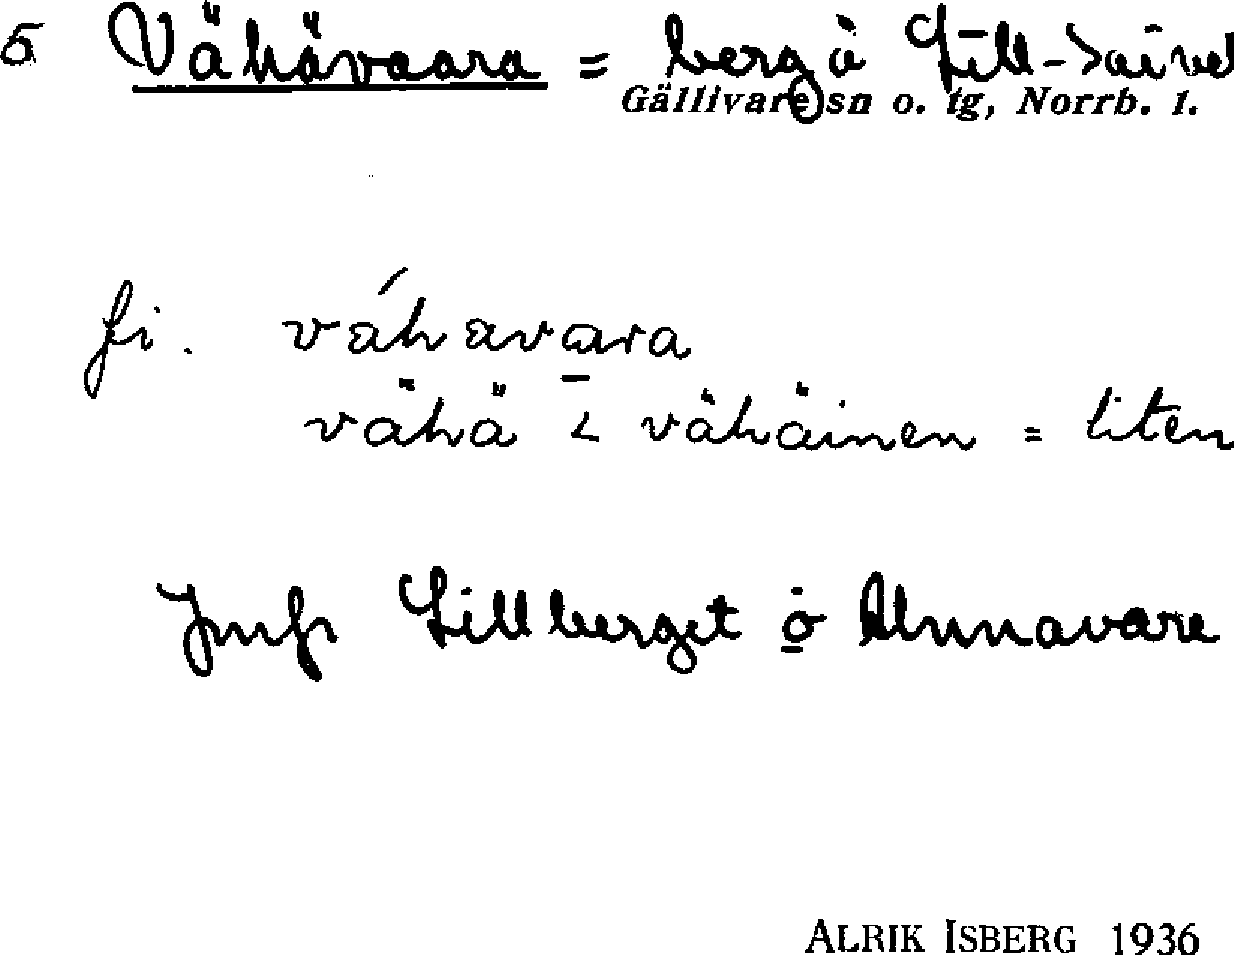 5 Vähävaara = berg å Lill-Saivel
Gällivare sn o. tg, Norrb. l.
fi. váhavara
vähä < vähäinen = liten
Jmfr Lillberget o Unnavare
ALRIK ISBERG 1936